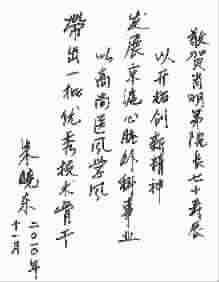 敬贺肖明第院长七十寿辰
以开拓创新精神
发展京沪心肺外科事业
以高尚医风学风
带出一批优秀技术骨干
朱晓东
二〇一〇年
十一月